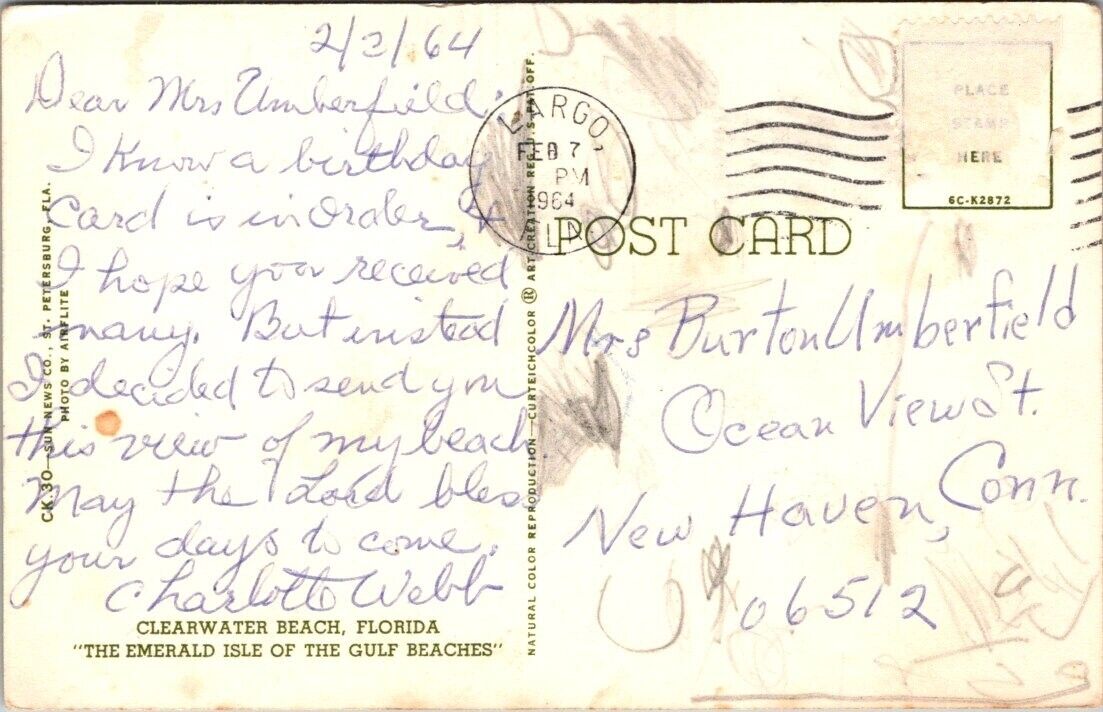 2/2/64
Dear Mrs Umberfield:
I know a birthday
card is in order, &
I hope you received
many. But instead
I decided to send you
this view of my beach.
May the Lord bless
your days to come.
Charlotte Webb
CLEARWATER BEACH, FLORIDA
"THE EMERALD ISLE OF THE GULF BEACHES"
CK.30—SUN NEWS CO., ST. PETERSBURG, FLA.
PHOTO BY AIRFLITE
NATURAL COLOR REPRODUCTION—CURTEICHCOLOR ® ART CREATION REG. U.S. PAT. OFF.
LARGO,
FEB 7
PM
1964
FLA.
PLACE
STAMP
HERE
6C-K2872
POST CARD
Mrs Burton Umberfield
Ocean View St.
New Haven, Conn.
06512